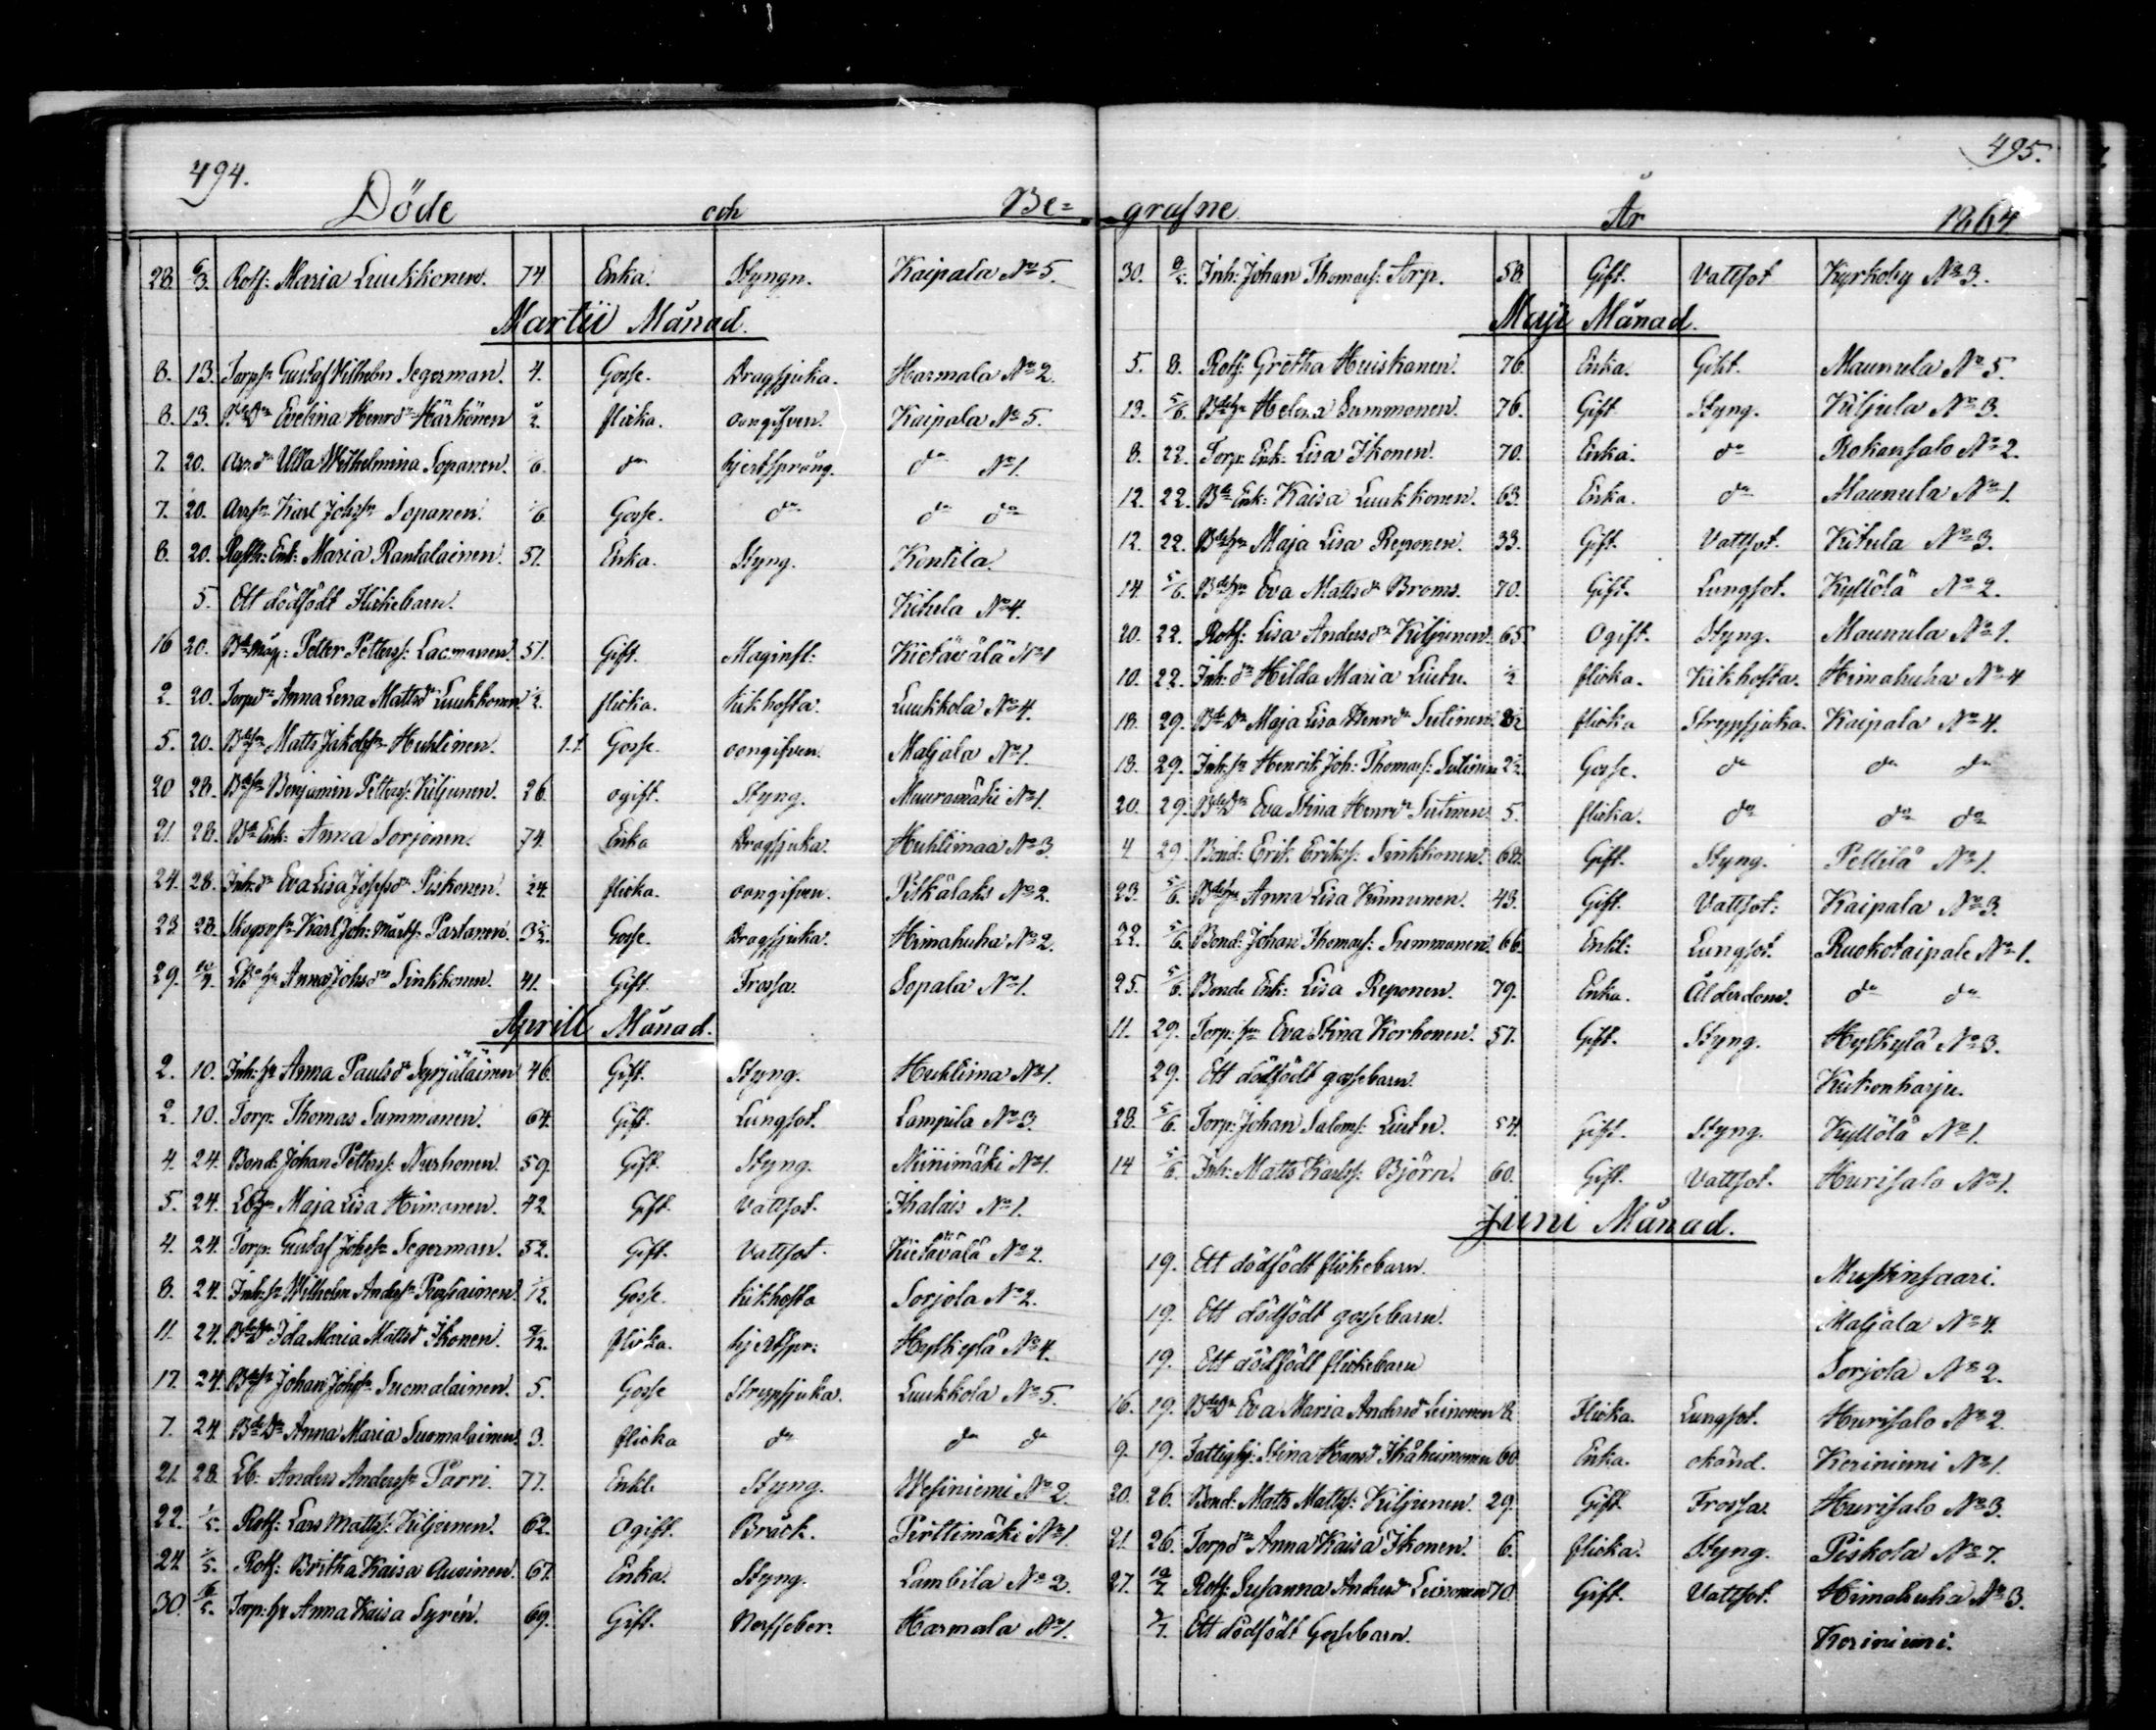 494.
Döde och Be=
28. 6/3. Rotf: Maria Luukkonen. 74 Enka. Styngn. Kaipala No 5.
Martii Månad.
8. 13. Torpsn Gustaf Vilhelm Segerman. 4. Gosse. Dragsjuka. Harmala No 2.
8. 13. Evelina Henrdr Härkönen flicka. oangifven. Kaipala No 5.
7. 20. Ulla Wilhelmina Sopanen. do hjertsprång. do No 1.
7. 20. Karl Johssn Sopanen. Gosse. do do do
8. 20. Enk: Maria Rantalainen. 51. Enka. Styng. Kontila.
5. Ett dödfödt Flickebarn. Kitula No 4.
16 20. Bde måg: Petter Petterss: Lacmanen. 51. Gift. Maginfl: Kietäválä No 1
2. 20. Torpdr Anna Lena Mattsdr Luukkonen 1/2. flicka. kikhosta. Luukkola No 4.
5. 20. Bdesn Matts Jakobssn Huhlinen. 11. Gosse. oangifven. Maljala No 1.
20 28. Bdesn Benjamin Petterss: Kiljunen. 26. ogift. Styng. Muuramäki No 1.
21. 28. Bde Enk: Anna Sorjonen. 74. Enka Dragsjuka. Huhlimaa No 3.
24. 28. Inh:dr Eva Lisa Josefsdr Piskonen. flicka. oangifven. Pitkälaks No 2.
23. 28. Karl Joh: Partanen. 3 1/2. Gosse. Dragsjuka. Himahuha No 2.
29. 10/4. Anna Johsdr Sinkkonen. 41. Gift. Frossa. Sopala No 1.
Aprill Månad.
2. 10. Inh: hu Anna Paulsdr Syrjäläinen 46. Gift. Styng. Huhlima No 1.
2. 10. Torp: Thomas Summanen. 64. Gift. Lungsot. Lampila No 3.
4. 24. Bond: Johan Petterss: Nurhonen. 59. Gift. Styng. Niinimäki No 1.
5. 24. Maja Lisa Himanen. 42. Gift. Vattsot. Ihalais No 1.
4. 24. Torp: Gustaf Johssn Segerman. 52. Gift. Vattsot. Kietävälä No 2.
8. 24. Inh:sn Wilhelm Anderssn Pursiainen. Gosse. kikhosta Sorjola No 2.
11. 24. Bdedr Ida Maria Mattsdr Ikonen. 9/12. flicka. hjertspr: Hylkylä No 4.
17. 24. Bdesn Johan Johssn Suomalainen. 5. Gosse Strypsjuka. Luukkola No 5.
7. 24. Bdedr Anna Maria Suomalainen. 3. flicka do do do
21. 28. Eb: Anders Anderssn Parri. 77. Enkl. Styng. Wesiniemi No 2.
22. 1/5. Rotf: Lars Mattss: Kiljunen. 62. Ogift. Bråck. Pirttimäki No 1.
24. 1/5. Rotf: Britha Kaisa Auvinen. 67. Enka. Styng. Lambila No 2.
30. Torp: hu Anna Kaisa Syrén. 69. Gift. Nerffeber. Harmala No 1.
495.
grafne År 1864
30. 8/5. Inh: Johan Thomass: Torp. 58. Gift. Vattsot Kyrkoby No 3.
Maji Månad.
5. 8. Rotf: Gretha Huiskanen. 76. Enka. Gikt. Maunula No 5.
13. 5/6. Bdehu Helena Summanen. 76. Gift Styng. Kiljula No 3.
8. 22. Torp: Enk: Lisa Ikonen. 70. Enka. do Rokansalo No 2.
12. 22. Bde Enk: Kaisa Luukkonen. 63. Enka. do Maunula No 1.
12. 22. Bdehu Maja Lisa Reponen. 33. Gift. Vattsot. Kitula No 3.
14 5/6. Bdehu Eva Mattsdr Broms. 70. Gift. Lungsot. Kyllölä No 2.
20. 22. Rotf: Lisa Andersdr Kiljunen. 65 Ogift. Styng. Maunula No 1.
10. 22. Inh:dr Hilda Maria Liutu. 1/2 flicka. Kikhosta. Himahuha No 4
18. 29. Bdedr Maja Lisa Henrdr Sutinen. 8 1/2 flicka Strypsjuka. Kaipala No 4.
13. 29. Inh:sn Henrik Joh: Thomass: Sutinen 2 1/2. Gosse. do do do
20. 29. Bdedr Eva Stina Henrdr Sutinen. 5. flicka. do do do
4 29 Bond: Erik Erikss: Sinkkonen. 68. Gift. Styng. Pettilä No 1.
23. 5/6. Bdehu Anna Lisa Kinnunen. 43. Gift. Vattsot: Kaipala No 3.
22. 5/6. Bond: Johan Thomass: Summanen. 66. Enkl: Lungsot. Ruokotaipale No 1.
25. 5/6. Bonde Enk: Lisa Reponen. 79. Enka. Ålderdom. do do
11. 29. Torp: hu Eva Stina Korhonen. 57. Gift. Styng. Hylkylä No 3.
29. Ett dödfödt gossebarn. Kukonharju.
28. 5/6. Torp: Johan Saloms: Liutu. 54. Gift. Styng. Kyllölä No 1.
14 5/6. Inh: Matts Karlss: Björn. 60. Gift. Vattsot. Hurisalo No 1.
Juni Månad.
19. Ett dödfödt flickebarn. Mustinsaari.
19. Ett dödfödt gossebarn. Maljala No 4.
19. Ett dödfödt flickebarn Sorjola No 2.
16. 19. Bdedr Eva Maria Andersdr Leinonen 8. Flicka. Lungsot. Hurisalo No 2.
9. 19. Fattighj: Stina Hansdr Ikäheimonen 60. Enka. okänd. Keriniemi No 1.
20. 26. Bond: Matts Mattss: Kiljunen. 29. Gift Frossa. Hurisalo No 3.
21. 26. Torpdr Anna Kaisa Ikonen. 6. flicka. Styng. Piskola No 7.
27. 10/7 Rotf: Susanna Andersdr Leinonen 70. Gift. Vattsot. Himahuha No 3.
3/7. Ett dödfödt Gossebarn. Keriniemi.